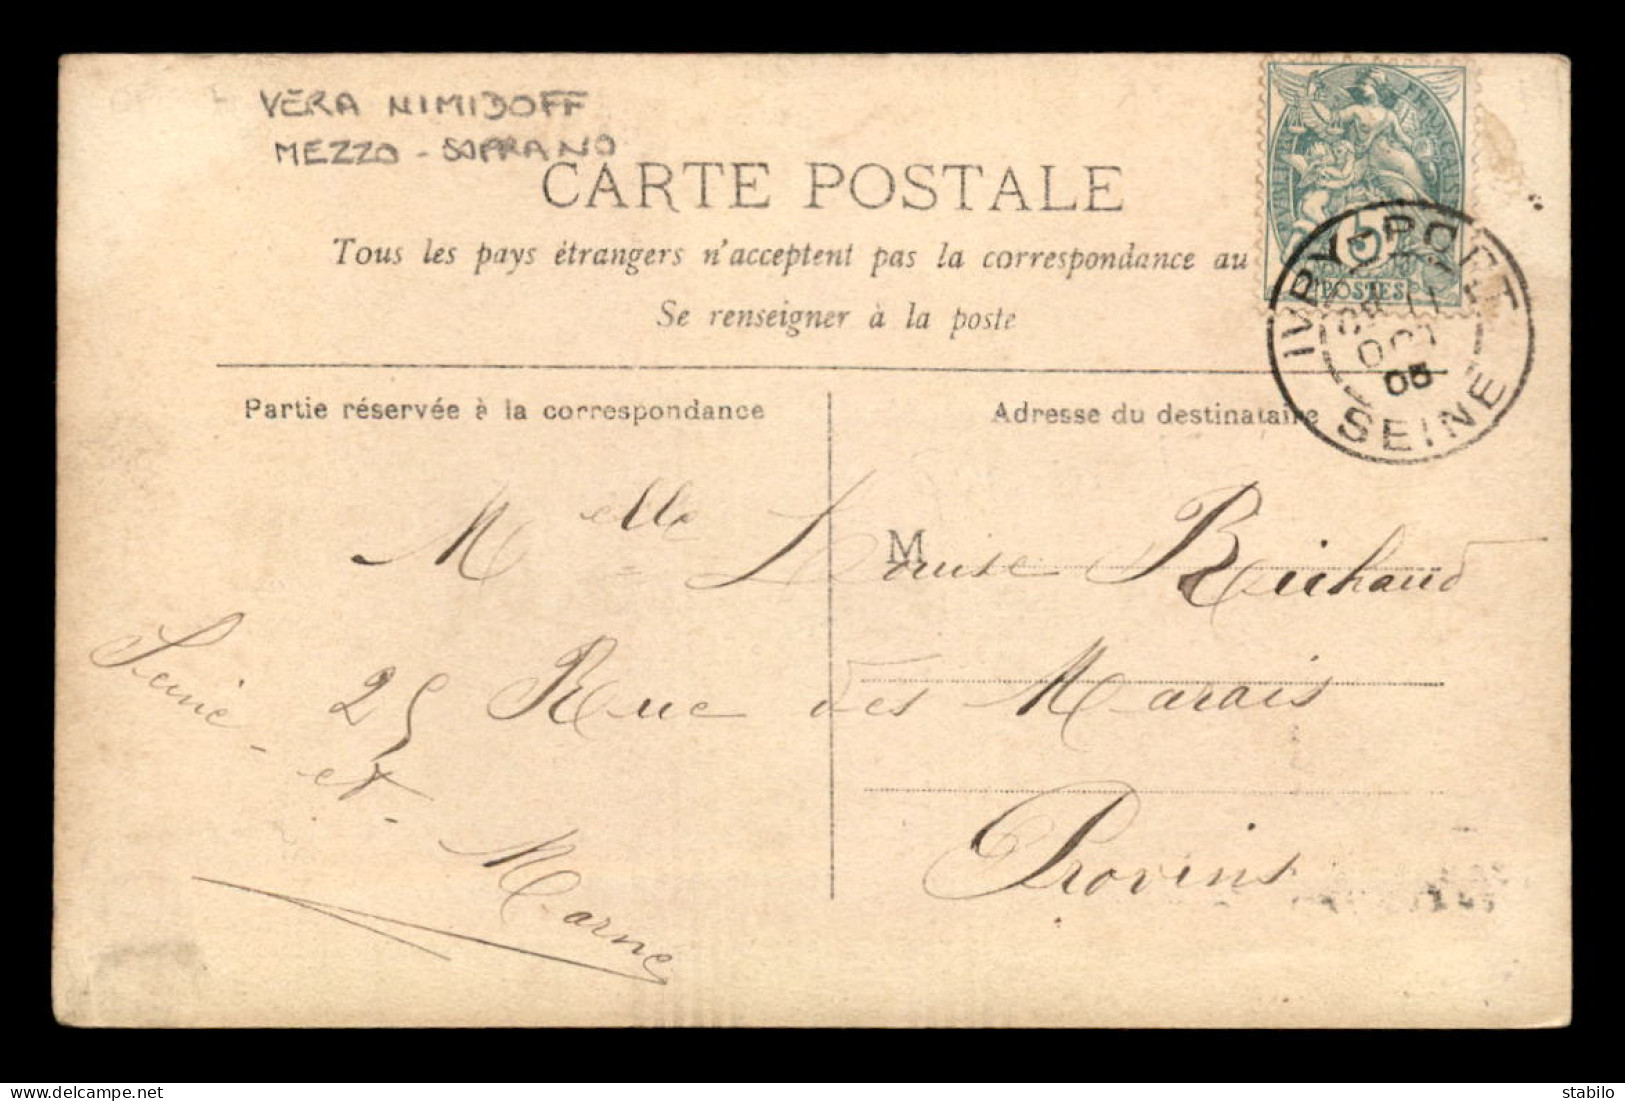 VERA NIMIDOFF
MEZZO - SOPRANO
CARTE POSTALE
Tous les pays étrangers n'acceptent pas la correspondance au
Se renseigner à la poste
Partie réservée à la correspondance
Adresse du destinataire
5
POSTES
IVRY-PORT
OCT
05
SEINE
M
Melle Louise Richaud
25 Rue des Marais
Provins
Seine-et-Marne
stabilo